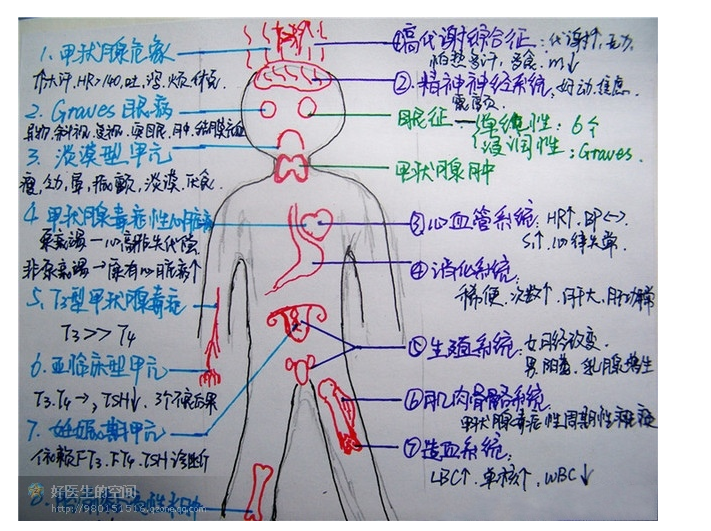 1. 甲状腺危象
大汗, HR>140, 吐, 泻, 烦,
2. Graves 眼病
异物, 斜视, 复视, 突眼, 肿, 结膜充血
3. 淡漠型甲亢
瘦, 乏力, 晕, 淡漠, 厌食
4. 甲状腺毒症性心脏病
→心脏病↑
5. T3型甲状腺毒症
T3 >> T4
6. 亚临床型甲亢
T3. T4→, TSH↓, 3个不良后果
7. 妊娠期甲亢
依赖 FT3. FT4. TSH 诊断
8.
①高代谢综合征: 代谢↑, 乏力,
怕热多汗, 多食, m↓
②.精神神经系统: 好动, 焦虑
眼征 — 单纯性: 6个
浸润性: Graves.
甲状腺肿
③心血管系统: HR↑, BP
S1↑, 心律失常.
④消化系统:
稀便, 次数↑, 肝大, 肝功异常
⑤生殖系统: 女月经改变.
男阳萎, 乳腺增生
⑥肌肉骨骼系统.
甲状腺毒症性周期性
⑦造血系统:
LBC↑, 单核↑, WBC↓
好医生的空间
http://980151516.qzone.qq.com